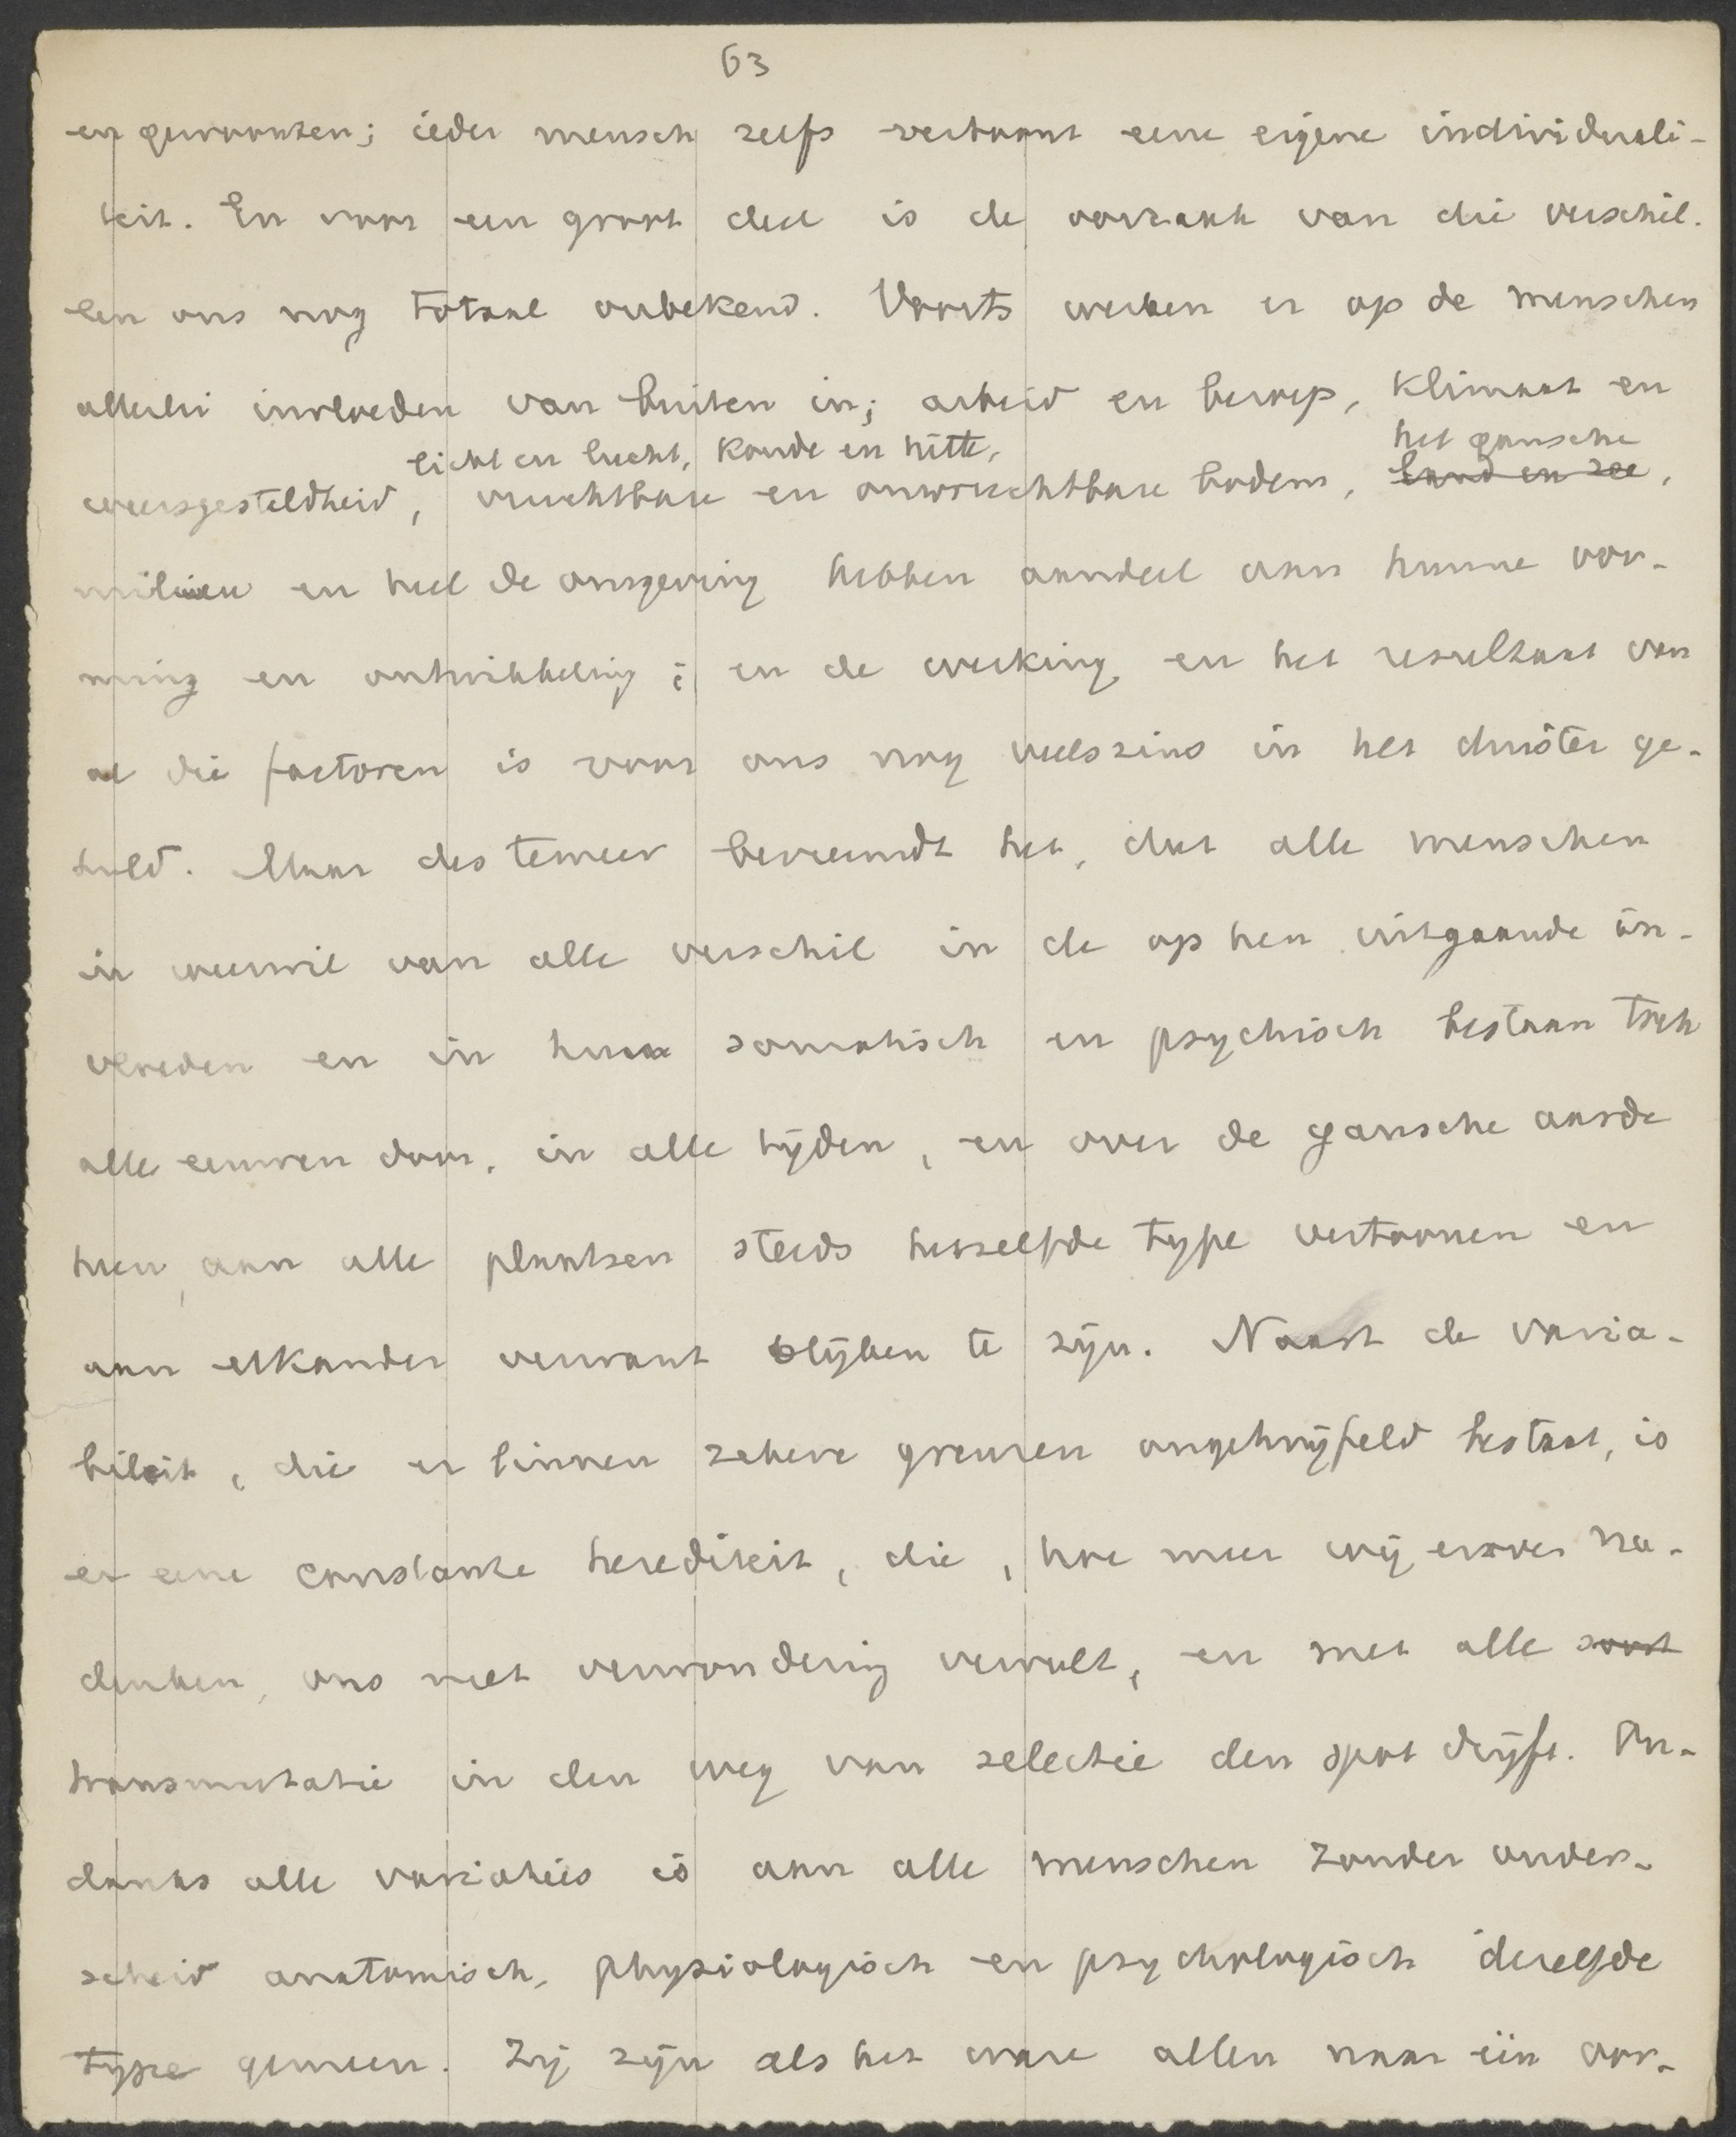 63
en gewoonten; ieder mensch zelfs vertoont eene eigene individuali-
teit. En voor een groot deel is de oorzaak van die verschil-
len ons nog totaal onbekend. Voorts werken er op de menschen
allerlei invloeden van buiten in; arbeid en beroep, klimaat en
licht en lucht, koude en hitte, het gansche
weersgesteldheid, vruchtbare en onvruchtbare bodem, land en zee,
milieu en heel de omgeving hebben aandeel aan hunne vor-
ming en ontwikkeling; en de werking en het resultaat van
al die factoren is voor ons nog veelszins in het duister ge-
huld. Maar des temeer bevreemdt het, dat alle menschen
in weerwil van alle verschil in de op hen uitgaande in-
vloeden en in hun somatisch en psychisch bestaan toch
alle eeuwen door, in alle tijden, en over de gansche aarde
heen, aan alle plaatsen steeds hetzelfde type vertoonen en
aan elkander verwant blijken te zijn. Naast de varia-
biliteit, die er binnen zekere grenzen ongetwijfeld bestaat, is
er eene constante herediteit, die, hoe meer wij erover na-
denken, ons met verwondering vervult, en met alle soort
transmutatie in den weg van selectie den spot drijft. On-
danks alle variaties is aan alle menschen zonder onder-
scheid anatomisch, physiologisch en psychologisch dezelfde
type gemeen. Zij zijn als het ware allen naar één oor-